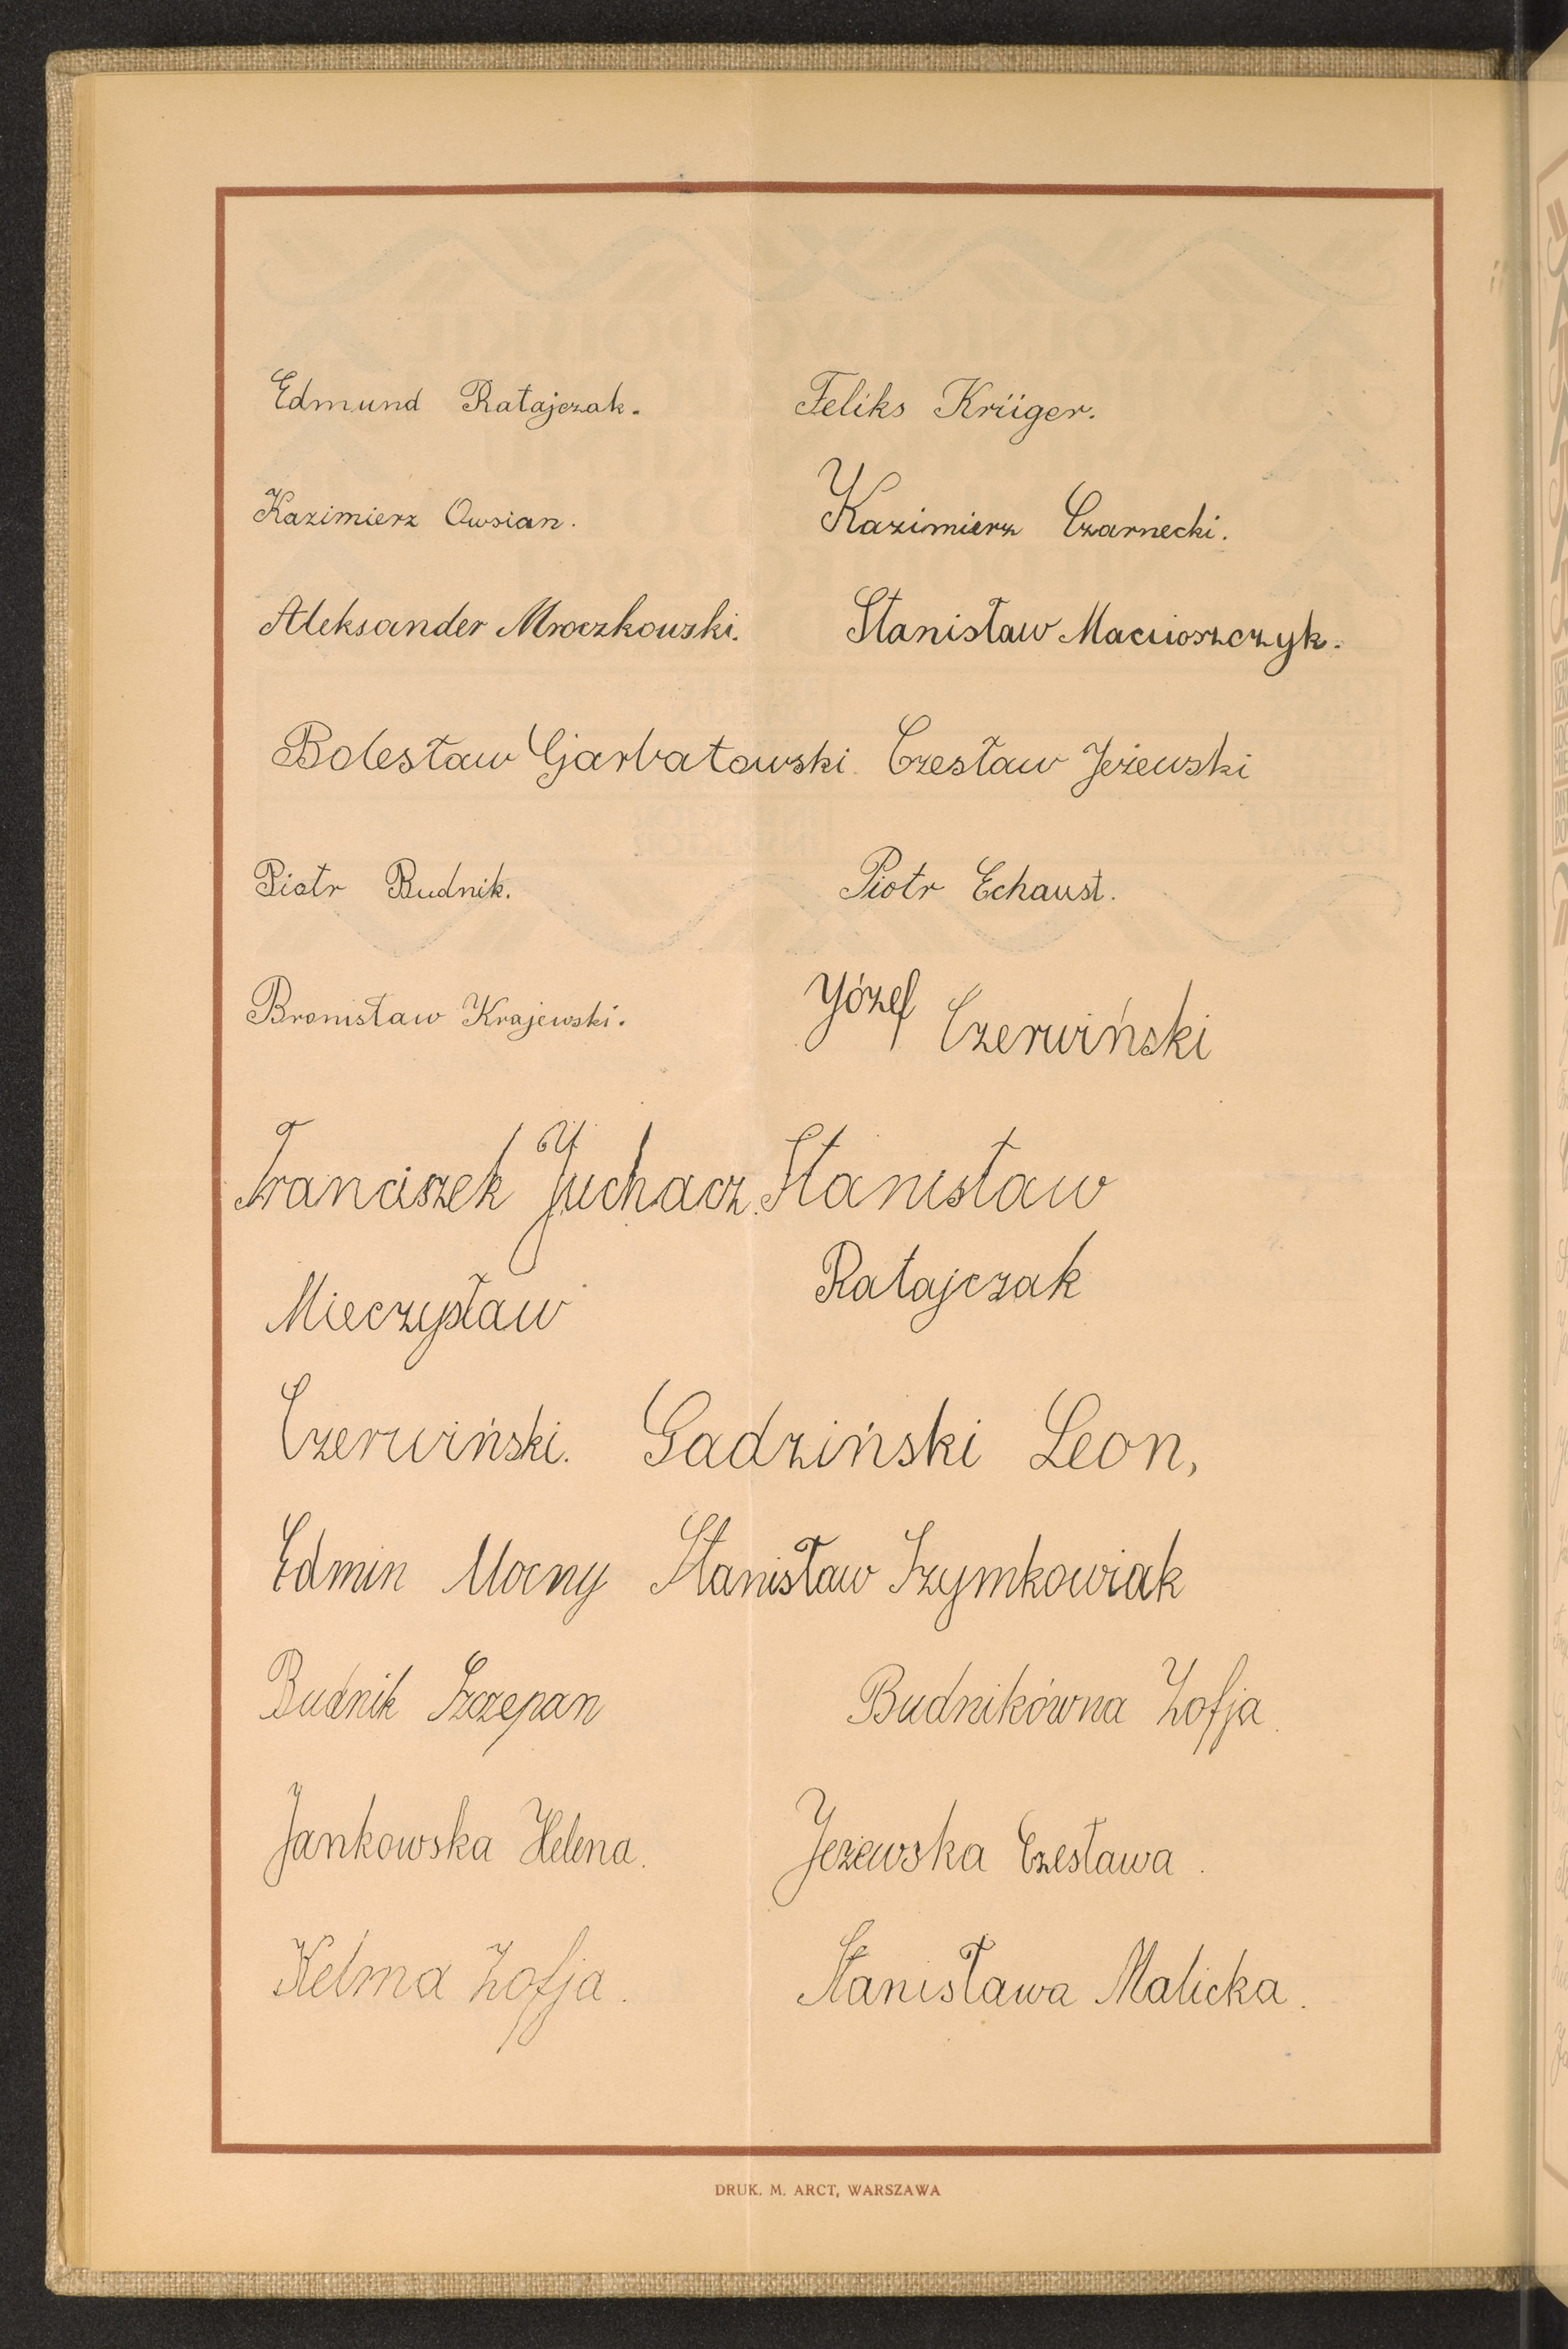 Edmund Ratajczak. Feliks Krüger.
Kazimierz Owsian. Kazimierz Czarnecki.
Aleksander Mroczkowski. Stanisław Macioszczyk.
Bolesław Garbatowski. Czesław Jeżewski
Piotr Budnik. Piotr Echaust.
Bronisław Krajewski. Józef Czerwiński
Franciszek Juchacz. Stanisław
Mieczysław Ratajczak
Czerwiński. Gadziński Leon,
Edmin Mocny Stanisław Szymkowiak
Budnik Szczepan Budnikówna Zofja.
Jankowska Helena. Jeżewska Czesława.
Kelma Zofja. Stanisława Malicka.
DRUK. M. ARCT, WARSZAWA